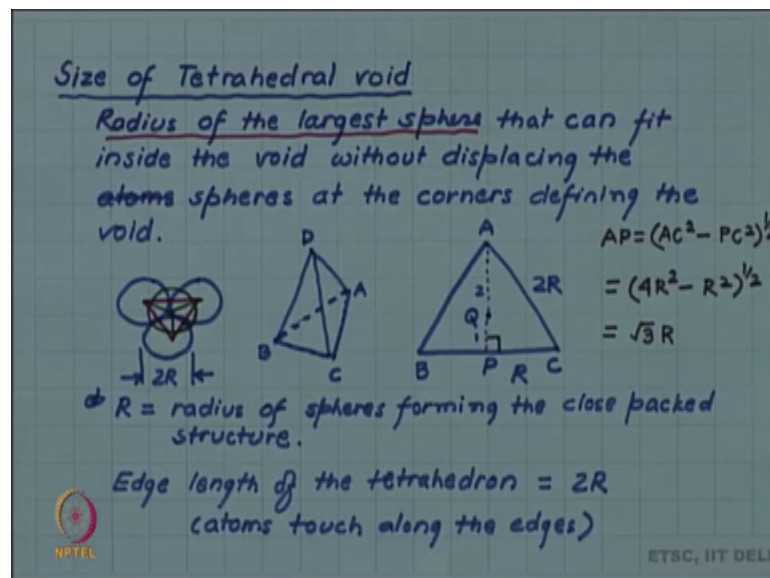 Size of Tetrahedral void
Radius of the largest sphere that can fit
inside the void without displacing the
atoms spheres at the corners defining the
void.
D
A
B
C
2R
A
2R
2
Q
1
B
P
R
C
AP = (AC² - PC²)^½
= (4R² - R²)^½
= √3 R
R = radius of spheres forming the close packed
structure.
Edge length of the tetrahedron = 2R
(atoms touch along the edges)
NPTEL
ETSC, IIT DEL